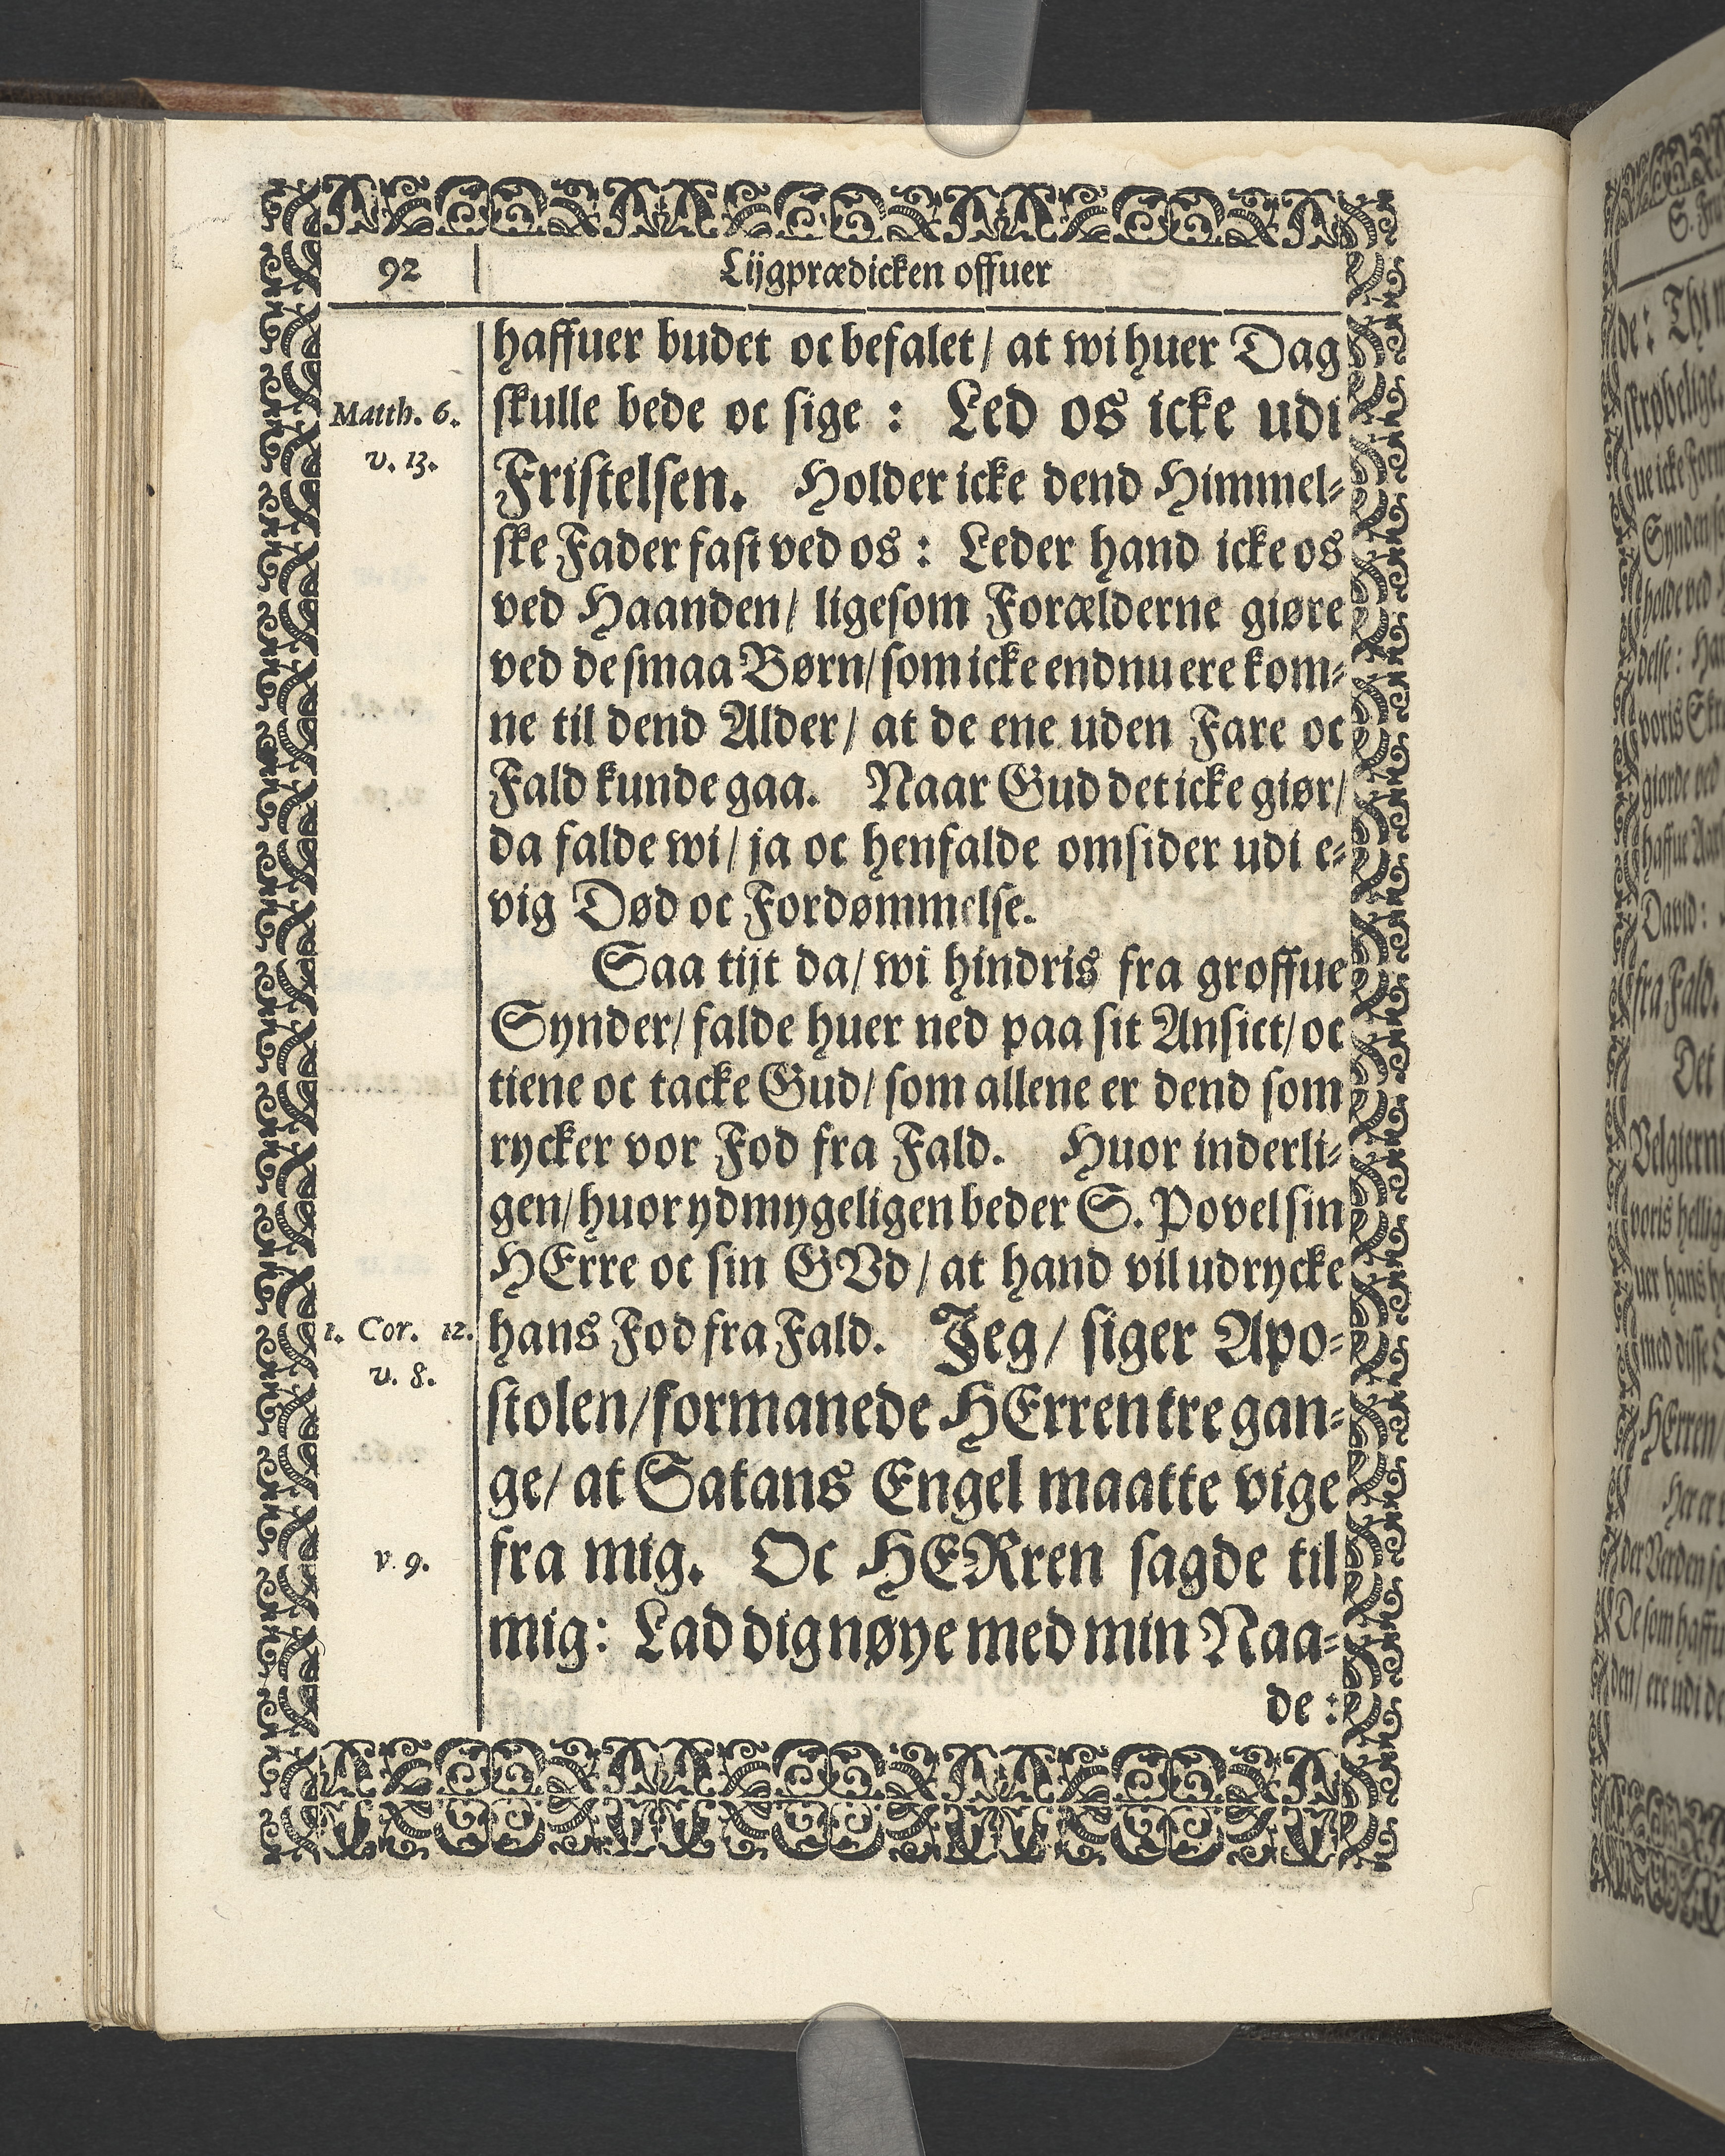 92
Lijgprædicken offuer
haffuer budet oc befalet/ at wi huer Dag
Matth. 6.
skulle bede oc sige : Led os icke udi
v. 13.
Fristelsen. Holder icke dend Himmel-
ske Fader fast ved os : Leder hand icke os
ved Haanden/ ligesom Forælderne giøre
ved de smaa Børn/ som icke endnu ere kom-
ne til dend Alder/ at de ene uden Fare oc
Fald kunde gaa. Naar Gud det icke giør/
da falde wi/ ja oc henfalde omsider udi e-
vig Død oc Fordømmelse.
Saa tijt da/ wi hindris fra groffue
Synder/ falde huer ned paa sit Ansict/ oc
tiene oc tacke Gud/ som allene er dend som
rycker vor Fod fra Fald. Huor inderli-
gen/ huor ydmygeligen beder S. Povel sin
HErre oc sin GVd/ at hand vil udrycke
1. Cor. 12.
hans Fod fra Fald. Jeg/ siger Apo-
v. 8.
stolen/ formanede HErren tre gan-
ge/ at Satans Engel maatte vige
v. 9.
fra mig. Oc HERren sagde til
mig: Lad dig nøye med min Naa-
de :